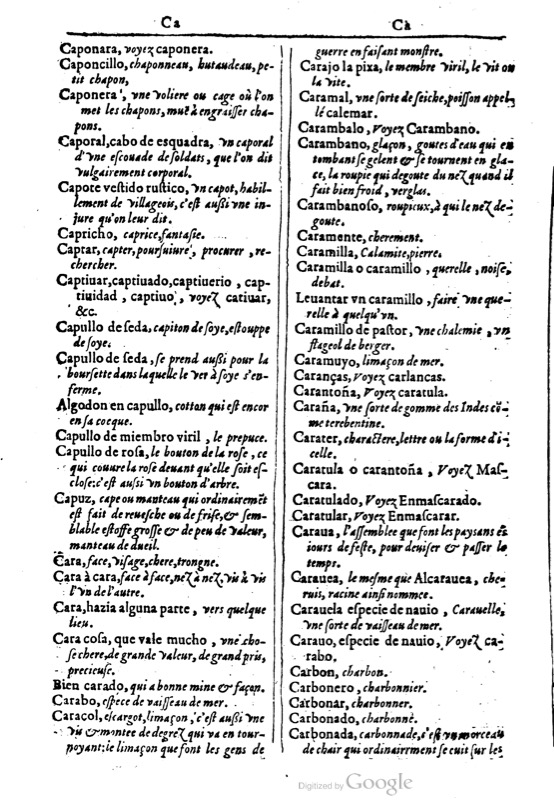 Ca
Caponara, voyez caponera.
Caponcillo, chaponneau, hutaudeau, pe-
tit chapon,
Caponera, vne voliere ou cage où l'on
met les chapons, muë à engraisser cha-
pons.
Caporal, cabo de esquadra, vn caporal
d'vne escouade de soldats, que l'on dit
vulgairement corporal.
Capote vestido rustico, vn capot, habil-
lement de villageois, c'est aussi vne in-
jure qu'on leur dit.
Capricho, caprice, fantasie.
Captar, capter, poursuiure, procurer, re-
chercher.
Captiuar, captiuado, captiuerio, cap-
tiuidad, captiuo, voyez catiuar,
&c.
Capullo de seda, capiton de soye, estouppe
de soye.
Capullo de seda, se prend aussi pour la
boursette dans laquelle le ver à soye s'en-
ferme.
Algodon en capullo, cotton qui est encor
en sa cocque.
Capullo de miembro viril, le prepuce.
Capullo de rosa, le bouton de la rose, ce
qui couure la rose deuant qu'elle soit es-
close: c'est aussi vn bouton d'arbre.
Capuz, cape ou manteau qui ordinairemẽt
est fait de reuesche ou de frise, & sem-
blable estoffe grosse & de peu de valeur,
manteau de dueil.
Cara, face, visage, chere, trongne.
Cara à cara, face à face, nez à nez, vis à vis
l'vn de l'autre.
Cara, hazia alguna parte, vers quelque
lieu.
Cara cosa, que vale mucho, vne cho-
se chere, de grande valeur, de grand pris,
precieuse.
Bien carado, qui a bonne mine & façon.
Carabo, espece de vaisseau de mer.
Caracol, escargot, limaçon, c'est aussi vne
vis & montee de degrez qui va en tour-
noyant: le limaçon que font les gens de
Cà
guerre en faisant monstre.
Carajo la pixa, le membre viril, le vit ou
la vite.
Caramal, vne sorte de seiche, poisson appel-
lé calemar.
Carambalo, Voyez Carambano.
Carambano, glaçon, goutes d'eau qui en
tombant se gelent & se tournent en gla-
ce, la roupie qui degoute du nez quand il
fait bien froid, verglas.
Carambanoso, roupieux, à qui le nez de-
goute.
Caramente, cherement.
Caramilla, Calamite, pierre.
Caramilla o caramillo, querelle, noise,
debat.
Leuantar vn caramillo, faire vne que-
relle à quelqu'vn.
Caramillo de pastor, vne chalemie, vn
flageol de berger.
Caramuyo, limaçon de mer.
Carancas, Voyez carlancas.
Carantoña, Voyez caratula.
Caraña, vne sorte de gomme des Indes cõ-
me terebentine.
Carater, charactere, lettre ou la forme d'i-
celle.
Caratula o carantoña, Voyez Mas-
cara.
Caratulado, Voyez Enmascarado.
Caratular, Voyez Enmascarar.
Caraua, l'assemblee que font les paysans és
iours de feste, pour deuiser & passer le
temps.
Carauea, le mesme que Alcarauea, che-
ruis, racine ainsi nommee.
Carauela especie de nauio, Carauelle,
vne sorte de vaisseau de mer.
Carauo, especie de nauio, Voyez ca-
rabo.
Carbon, charbon.
Carbonero, charbonnier.
Carbonar, charbonner.
Carbonado, charbonné.
Carbonada, carbonnade, c'est vn morceau
de chair qui ordinairrment se cuit sur les
Digitized by Google